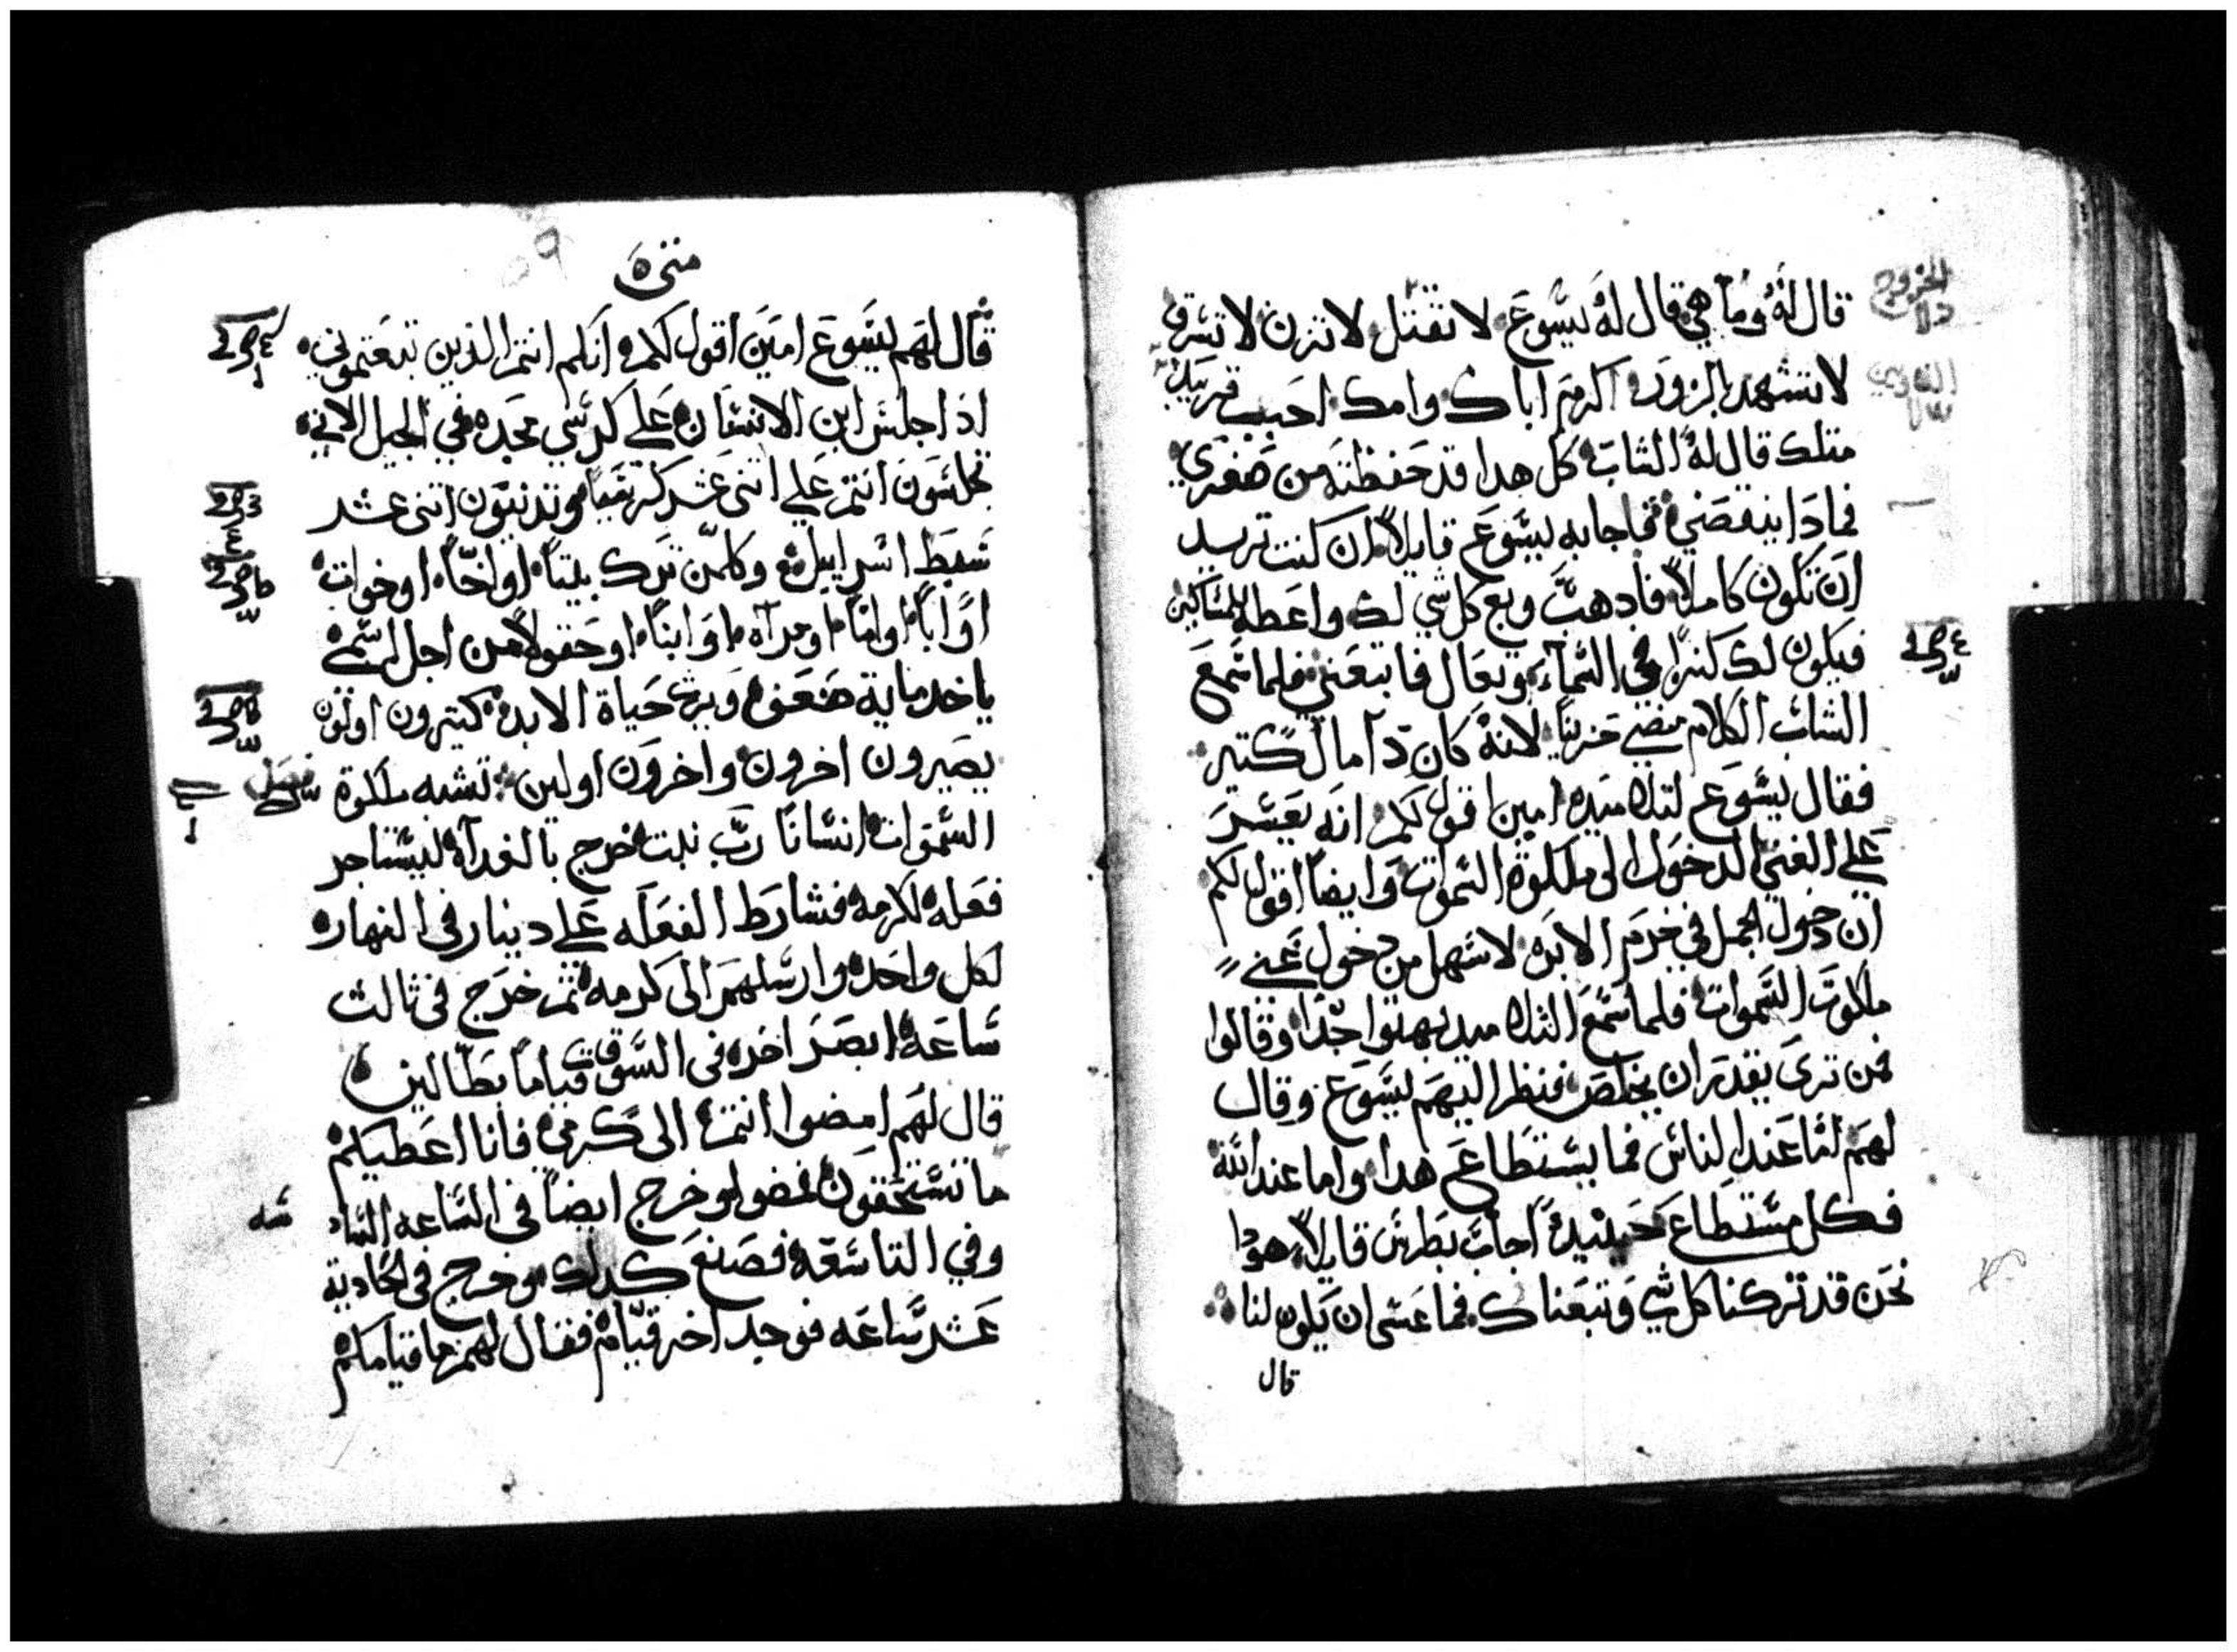 قال له وما هي قال له يسوع لا تقتل لا تزن لا تسرق
لا تشهد بالزور اكرم اباك وامك احبب قريبك
متلك قال له الشاب كل هدا قد حفظته من صغري
فمادا ينقصني فاجابه يسوع قايلاً ان كنت تريد
ان تكون كاملاً فادهب وبع كل شي لك واعطه للمساكين
فيكون لك كنزاً في السماء وتعال فاتبعني فلما سمع
الشاب الكلام مضي حزيناً لانه كان دا مال كتير
فقال يسوع لتلاميده امين اقول لكم انه يعسر
علي الغني الدخول الى ملكوة السموات وايضاً اقول لكم
ان دخول الجمل في خرم الابره لاسهل من دخول غني
ملكوت السموات فلما سمع التلاميد بهتوا جداً وقالوا
فمن تري يقدر ان يخلص فنظر اليهم يسوع وقال
لهم اما عند الناس فما يستطاع هدا واما عند الله
فكل مستطاع حينيد اجاب بطرس قايلاً هودا
نحن قد تركنا كل شي وتبعناك فما عسى ان يكون لنا
قال
الخروج
متى
قال لهم يسوع امين اقول لكم انكم انتم الدين تبعتموني
ادا جلس ابن الانسان علي كرسي مجده في الجيل الاتي
تجلسون انتم علي اتني عشر كرسياً وتدينون اتني عشر
سبط اسراييل وكلمن ترك بيتاً او اخاً او خوات
او اباً او اماً او مراه او ابناً او حقولاً من اجل اسمي
ياخد ماية ضعف ويرث حياة الابد كتيرون اولون
يصيرون اخرون واخرون اولين تشبه ملكوة
السموات انسانا رب بيت خرج بالغداه ليستاجر
فعله لكرمه فشارط الفعله علي دينار في النهار
لكل واحد وارسلهم الى كرمه تم خرج في تالت
ساعه ابصر اخر في السوق قياماً بطالين
قال لهم امضوا انتم الى كرمي فانا اعطيكم
ما تستحقون فمضوا وخرج ايضاً في الساعه الساد
سه
وفي التاسعه فصنع كدلك وخرج في الحادية
عشر ساعه فوجد اخر قيام فقال لهم ما قيامكم